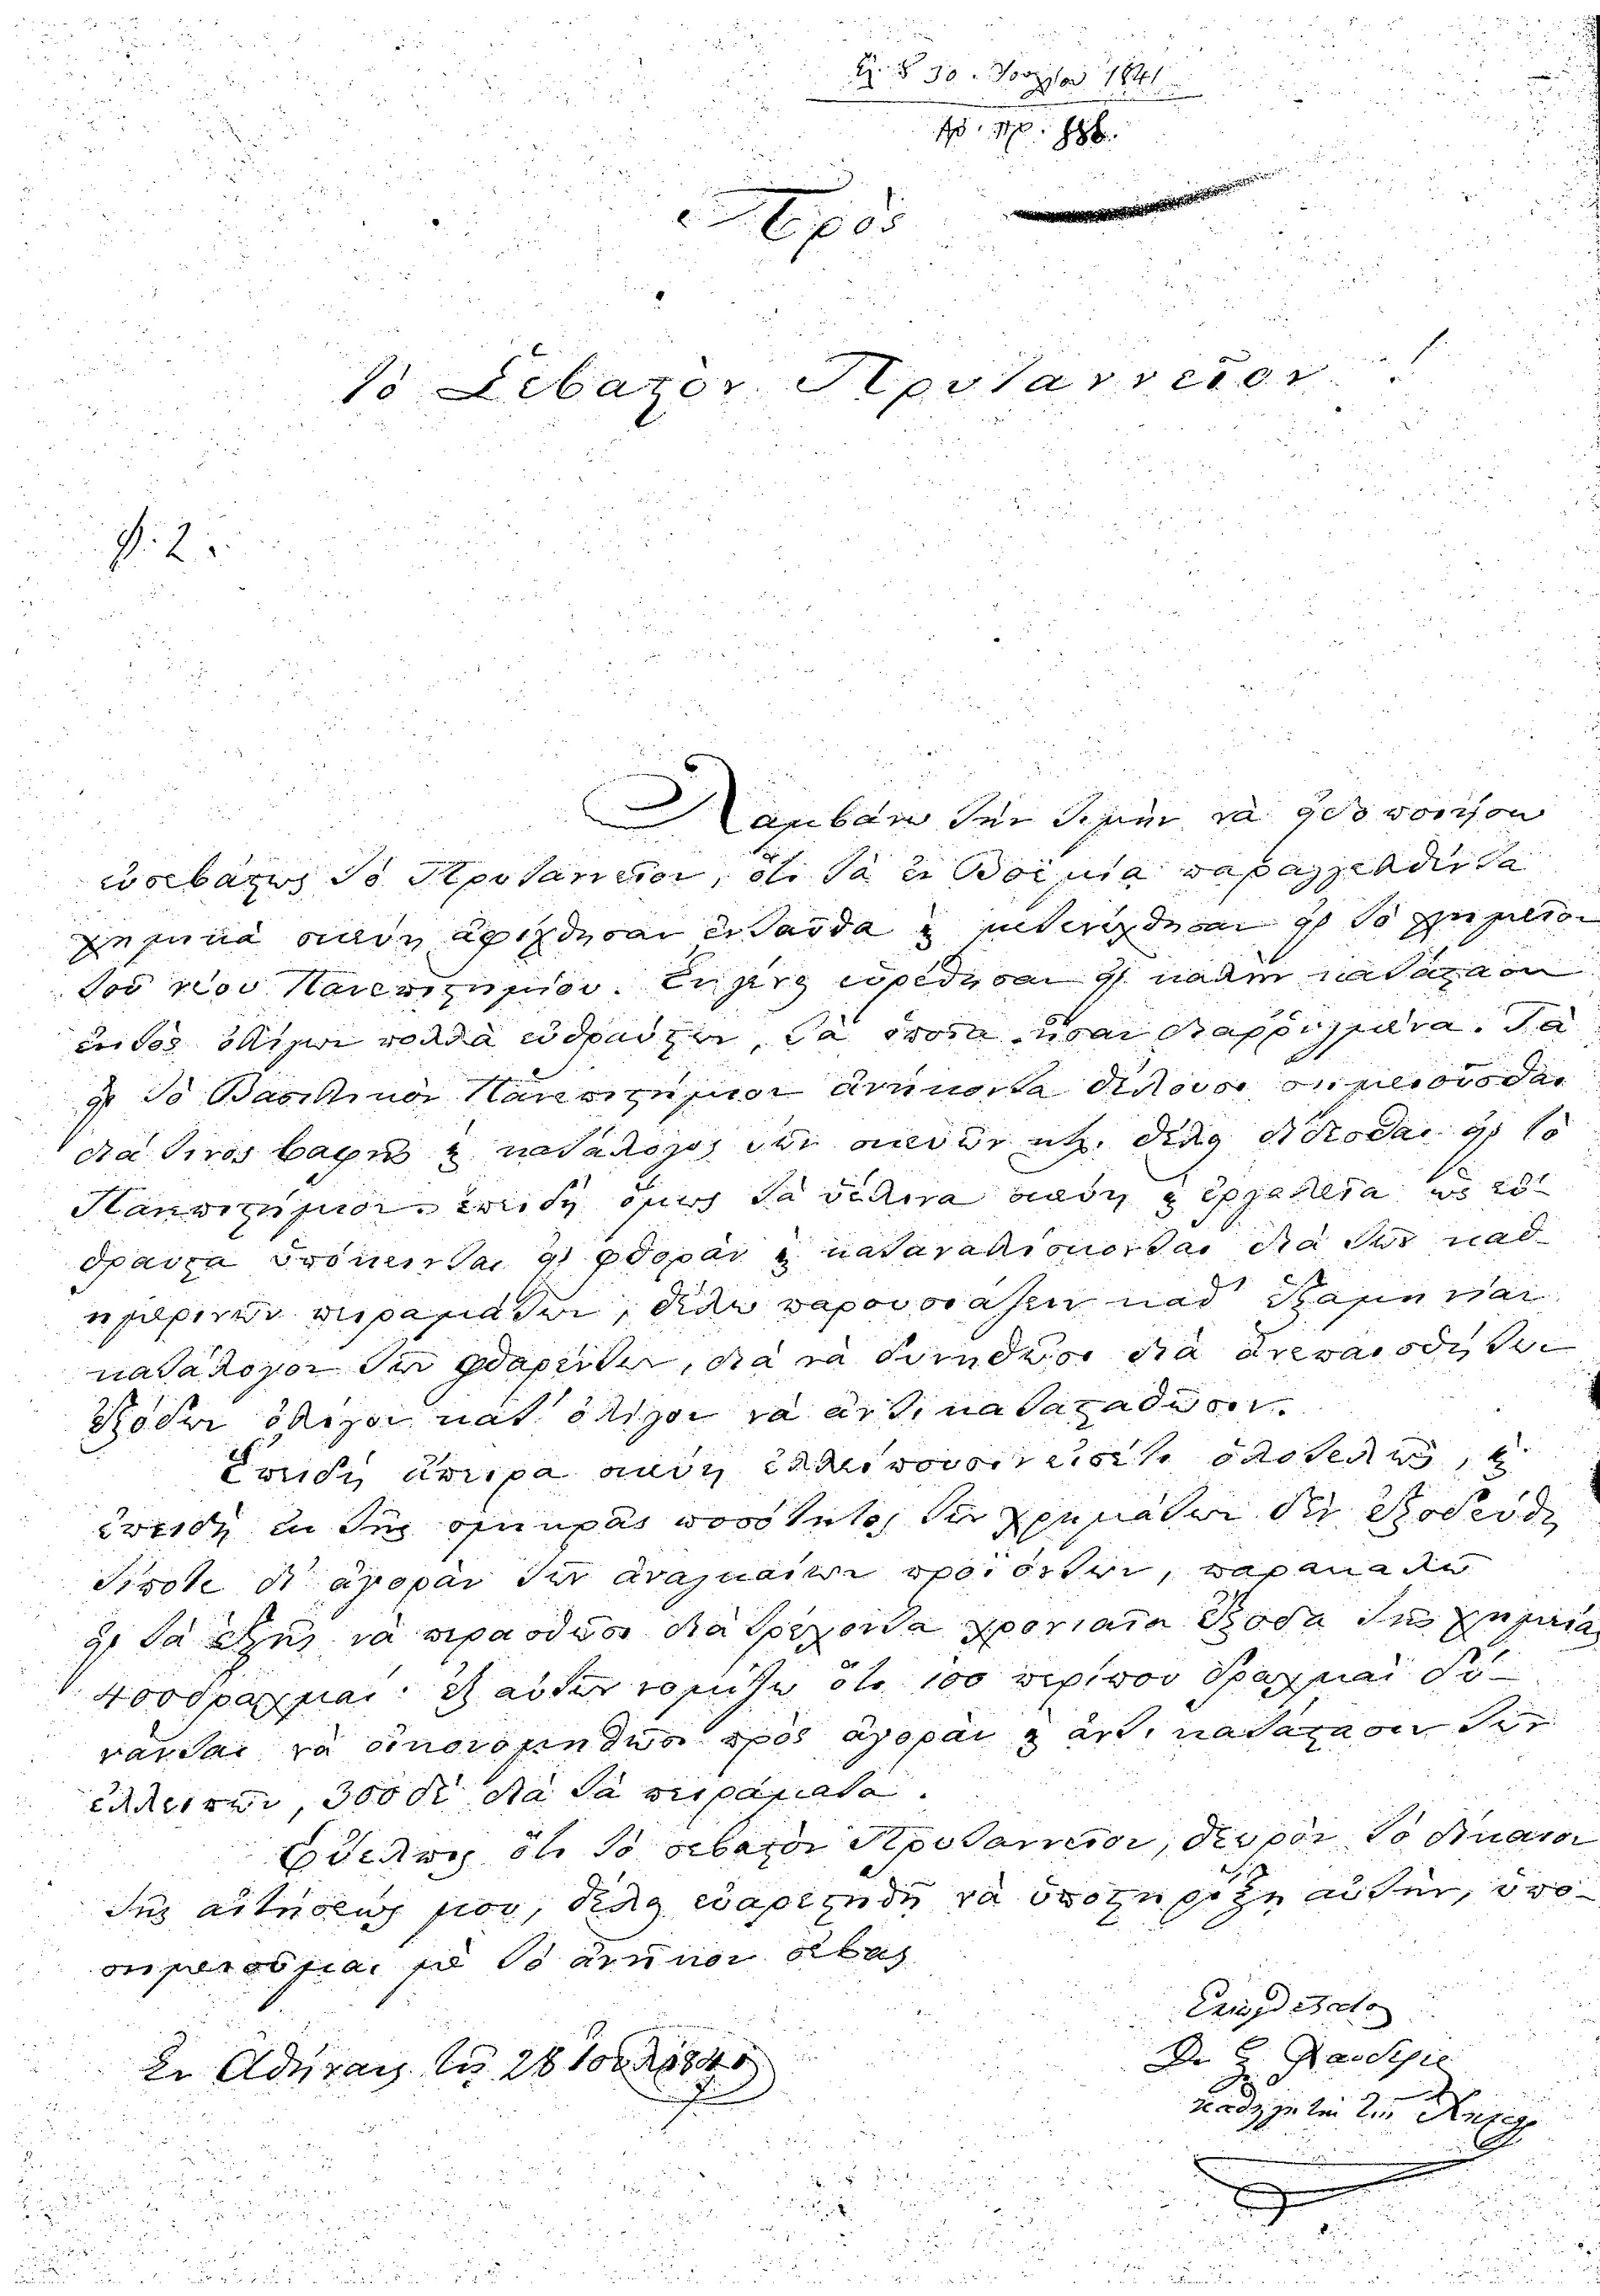 30 Ἰουλίου 1841
Ἀρ. Πρ. 886.
Πρὸς
τὸ Σεβαστὸν Πρυτανεῖον!
Ν. 2.
Λαμβάνω τὴν τιμὴν νὰ εἰδοποιήσω
εὐσεβάστως τὸ Πρυτανεῖον, ὅτι τὰ ἐν Βοεμίᾳ παραγγελθέντα
χημικὰ σκεύη ἀφίχθησαν ἐνταῦθα καὶ μετενέχθησαν εἰς τὸ χημεῖον
τοῦ νέου Πανεπιστημίου. Ἐν γένει εὑρέθησαν εἰς καλὴν κατάστασιν
ἐκτὸς ὀλίγων πολλὰ εὐθραύστων, τὰ ὁποῖα ἦσαν διαρρηγμένα. Τὰ
εἰς τὸ Βασιλικὸν Πανεπιστήμιον ἀνήκοντα θέλουσι σημειοῦσθαι
διά τινος βαφῆς καὶ κατάλογος τῶν σκευῶν κτλ. θέλει δίδοσθαι εἰς τὸ
Πανεπιστήμιον. ἐπειδὴ ὅμως τὰ ὑέλινα σκεύη καὶ ἐργαλεῖα ὡς εὔ-
θραυστα ὑπόκεινται εἰς φθορὰν καὶ καταναλίσκονται διὰ τῶν καθ-
ημερινῶν πειραμάτων, θέλω παρουσιάζει καθ' ἑξαμηνίαν
κατάλογον τῶν φθαρέντων, διὰ νὰ δυνηθῶσι διὰ ἀνεπαισθήτων
ἐξόδων ὀλίγον κατ' ὀλίγον νὰ ἀντικατασταθῶσιν.
Ἐπειδὴ ἄπειρα σκεύη ἐλλείπουσιν εἰσέτι ὁλοτελῶς, καὶ
ἐπειδὴ ἐκ τῆς σμικρᾶς ποσότητος τῶν χρημάτων δὲν ἐξοδεύθη
τίποτε δι' ἀγορὰν τῶν ἀναγκαίων προϊόντων, παρακαλῶ
εἰς τὰ ἑξῆς νὰ περασθῶσι διὰ τρέχοντα χρονιαῖα ἔξοδα τῆς χημείας
400 δραχμαί· ἐξ αὐτῶν νομίζω ὅτι 100 περίπου δραχμαὶ δύ-
νανται νὰ οἰκονομηθῶσι πρὸς ἀγορὰν καὶ ἀντικατάστασιν τῶν
ἐλλειπῶν, 300 δὲ διὰ τὰ πειράματα.
Εὔελπις ὅτι τὸ σεβαστὸν Πρυτανεῖον, θεωρὸν τὸ δίκαιον
τῆς αἰτήσεώς μου, θέλει εὐαρεστηθῆ νὰ ὑποστηρίξῃ αὐτήν, ὑπο-
σημειοῦμαι μὲ τὸ ἀνῆκον σέβας
Εὐπειθέστατος
Ἐν Ἀθήναις τῇ 28 Ἰουλ. 1841
Dr Ξ. Λανδερερ
καθηγητὴς τῆς Χημείας